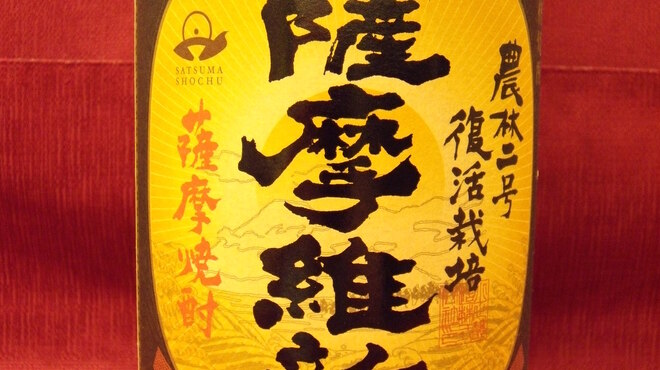 農林二号
復活栽培
薩摩維新
薩摩焼酎
SATSUMA
SHOCHU